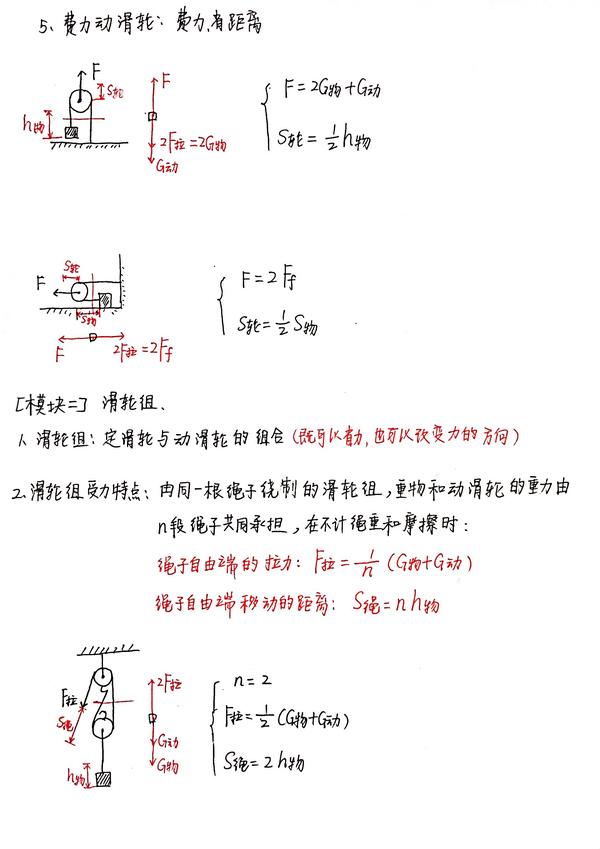 5、费力动滑轮：费力,省距离
F
S轮
h物
F
2F拉=2G物
G动
F=2G物+G动
S轮=1/2 h物
S轮
F
S物
F
2F拉=2Ff
F=2Ff
S轮=1/2 S物
[模块二] 滑轮组.
1、滑轮组：定滑轮与动滑轮的组合(既可以省力,也可以改变力的方向)
2.滑轮组受力特点：由同一根绳子绕制的滑轮组,重物和动滑轮的重力由
n段绳子共同承担,在不计绳重和摩擦时：
绳子自由端的拉力：F拉=1/n (G物+G动)
绳子自由端移动的距离：S绳=nh物
F拉
S绳
h物
2F拉
G动
G物
n=2
F拉=1/2(G物+G动)
S绳=2h物